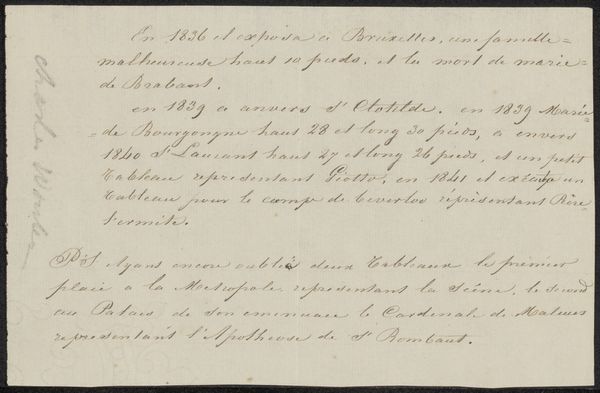 En 1836 il exposa a Bruxelles, une famille =
malheureuse haut 10 pieds, et la mort de marie =
de Brabant.
en 1839 a anvers St Clotilde. en 1839 Marie =
= de Bourgongne haut 28 et long 30 pieds, a envers
1840 St Laurant haut 27 et long 26 pieds, et un petit
Tableau representant Giotto, en 1841 il exécuta un
Tableau pour le camp de beverloo réprésentant Piere
l'ermite.
P.S Ayant encore oublié deux Tableaux le premier
placé a la Metropole representant la Scène, le second
au Palais de son eminence le Cardinale de Malines
representant l'Apotheose de St Rombaut.
Charles